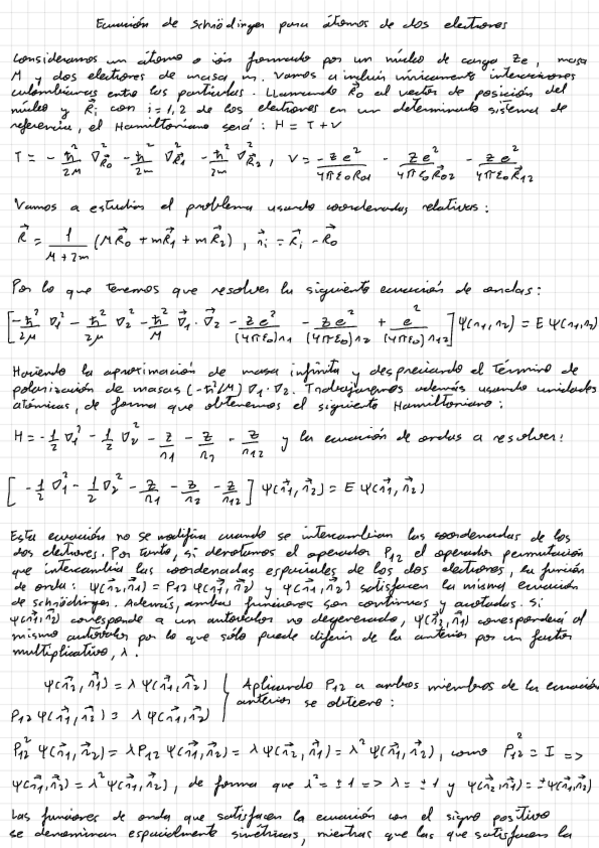 Ecuación de Schrödinger para átomos de dos electrones
Consideramos un átomo o ión formado por un núcleo de carga Ze, masa
M y dos electrones de masa, m. Vamos a incluir únicamente interacciones
culombianas entre las partículas. Llamando R⃗₀ al vector de posición del
núcleo y R⃗ᵢ con i = 1,2 de los electrones en un determinado sistema de
referencia, el Hamiltoniano será: H = T + V
T = -ħ²/2M ∇²R⃗₀ - ħ²/2m ∇²R⃗₁ - ħ²/2m ∇²R⃗₂, V = -Ze²/4πε₀R₀₁ - Ze²/4πε₀R₀₂ - Ze²/4πε₀R₁₂
Vamos a estudiar el problema usando coordenadas relativas:
R⃗ = 1/(M+2m) (MR⃗₀ + mR⃗₁ + mR⃗₂), r⃗ᵢ = R⃗ᵢ - R⃗₀
Por lo que tenemos que resolver la siguiente ecuación de ondas:
[-ħ²/2μ ∇₁² - ħ²/2μ ∇₂² - ħ²/M ∇⃗₁·∇⃗₂ - Ze²/(4πε₀)r₁ - Ze²/(4πε₀)r₂ + e²/(4πε₀)r₁₂] ψ(r₁,r₂) = E ψ(r₁,r₂)
Haciendo la aproximación de masa infinita y despreciando el término de
polarización de masas (-ħ²/M) ∇₁·∇₂. Trabajaremos además usando unidades
atómicas, de forma que obtenemos el siguiente Hamiltoniano:
H = -1/2 ∇₁² - 1/2 ∇₂² - Z/r₁ - Z/r₂ - Z/r₁₂ y la ecuación de ondas a resolver:
[-1/2 ∇₁² - 1/2 ∇₂² - Z/r₁ - Z/r₂ - Z/r₁₂] ψ(r⃗₁,r⃗₂) = E ψ(r⃗₁,r⃗₂)
Esta ecuación no se modifica cuando se intercambian las coordenadas de los
dos electrones. Por tanto, si denotamos el operador P₁₂ el operador permutación
que intercambia las coordenadas espaciales de los dos electrones, la función
de onda: ψ(r⃗₂,r⃗₁) = P₁₂ ψ(r⃗₁,r⃗₂) y ψ(r⃗₁,r⃗₂) satisfacen la misma ecuación
de schrödinger. Además, ambas funciones son continuas y acotadas. Si
ψ(r⃗₁,r⃗₂) corresponde a un autovalor no degenerado, ψ(r⃗₂,r⃗₁) corresponderá al
mismo autovalor por lo que sólo puede diferir de la anterior por un factor
multiplicativo, λ.
ψ(r⃗₂,r⃗₁) = λ ψ(r⃗₁,r⃗₂) } Aplicando P₁₂ a ambos miembros de la ecuación
P₁₂ ψ(r⃗₁,r⃗₂) = λ ψ(r⃗₁,r⃗₂) anterior se obtiene:
P₁₂² ψ(r⃗₁,r⃗₂) = λ P₁₂ ψ(r⃗₁,r⃗₂) = λ ψ(r⃗₂,r⃗₁) = λ² ψ(r⃗₁,r⃗₂), como P₁₂² = I =>
ψ(r⃗₁,r⃗₂) = λ² ψ(r⃗₁,r⃗₂), de forma que λ² = ±1 => λ = ±1 y ψ(r⃗₂,r⃗₁) = ±ψ(r⃗₁,r⃗₂)
Las funciones de onda que satisfacen la ecuación con el signo positivo
se denominan espacialmente simétricas, mientras que las que satisfacen la